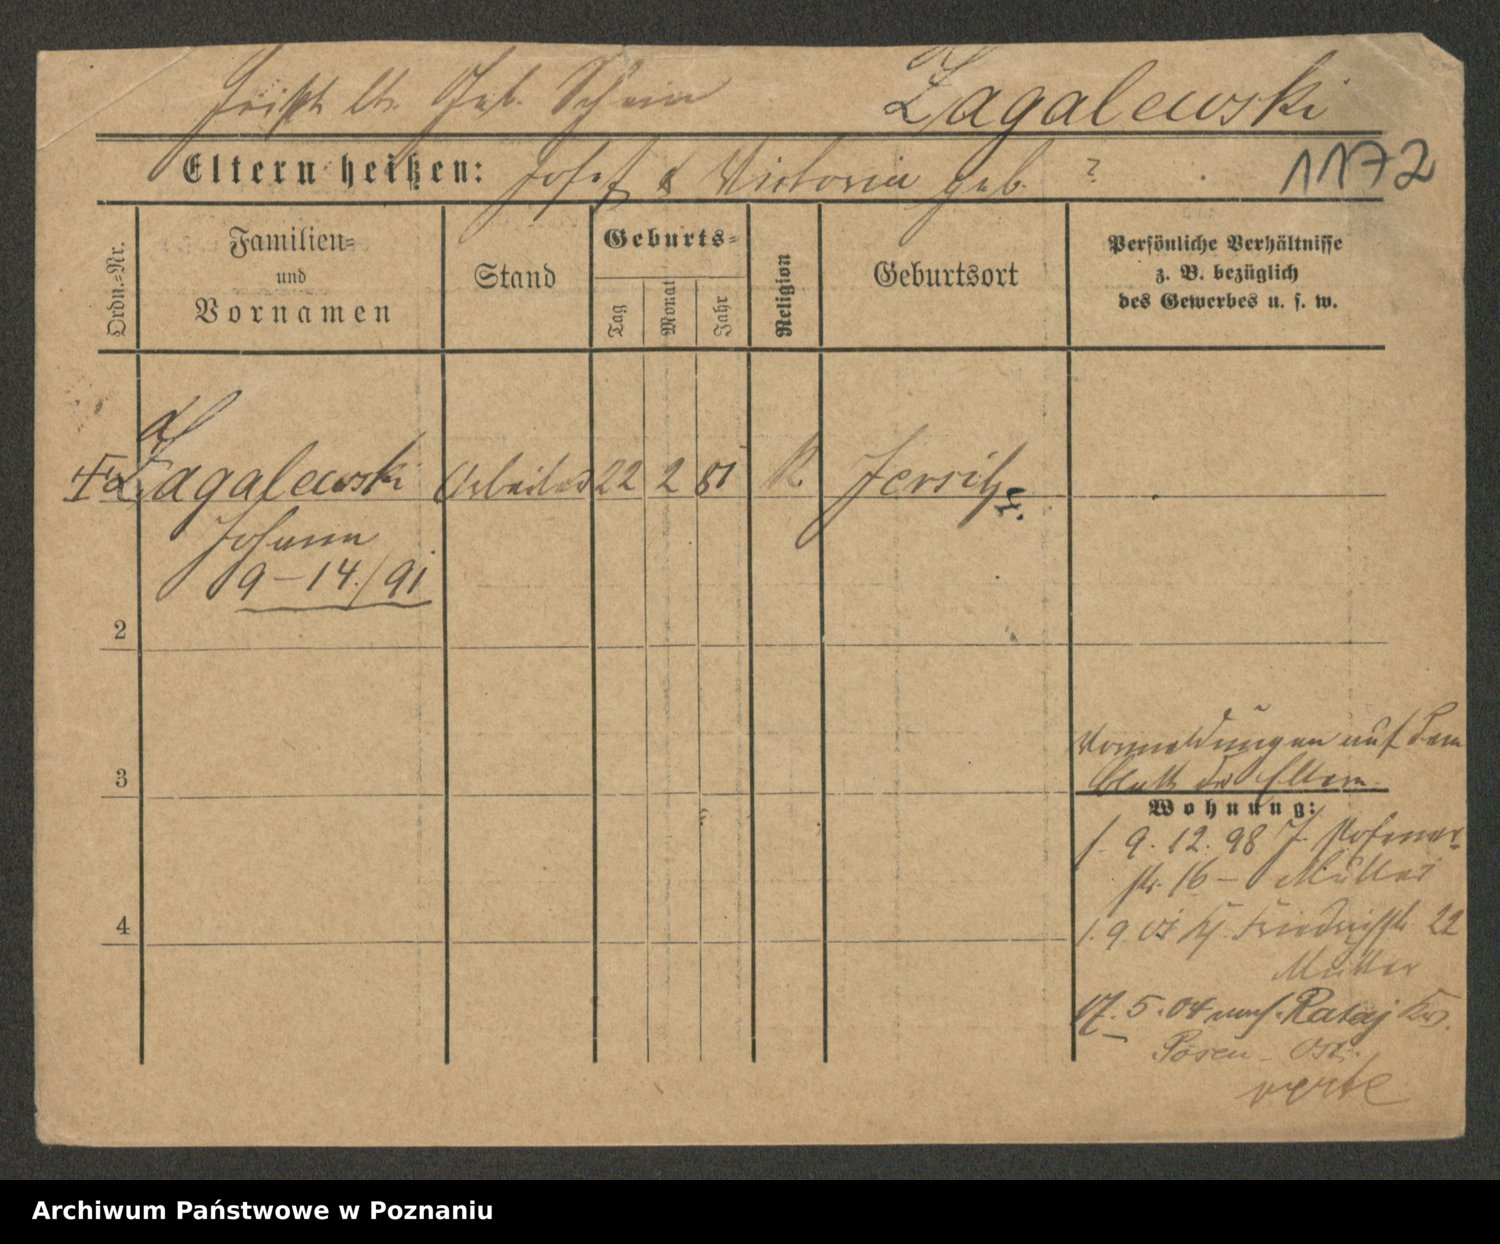 Geb. Schein Zagalewski
Eltern heißen: Josef & Victoria geb. ?
1172
Ordn.-Nr.
Familien-
und
Vornamen
Stand
Geburts-
Tag
Monat
Jahr
Religion
Geburtsort
Persönliche Verhältnisse
z. B. bezüglich
des Gewerbes u. s. w.
Zagalewski Arbeiter 22 2 81 K. Jersitz
Johann
9-14./91
2
3
4
Vormeldungen auf dem
Blatt der Eltern
Wohnung:
1. 9. 12. 98 J. Posener-
str. 16 - Müller
1. 9. 03 Friedrichstr. 22
Müller
17. 5. 04 nach Rataj Krs.
Posen - Ost.
verte
Archiwum Państwowe w Poznaniu